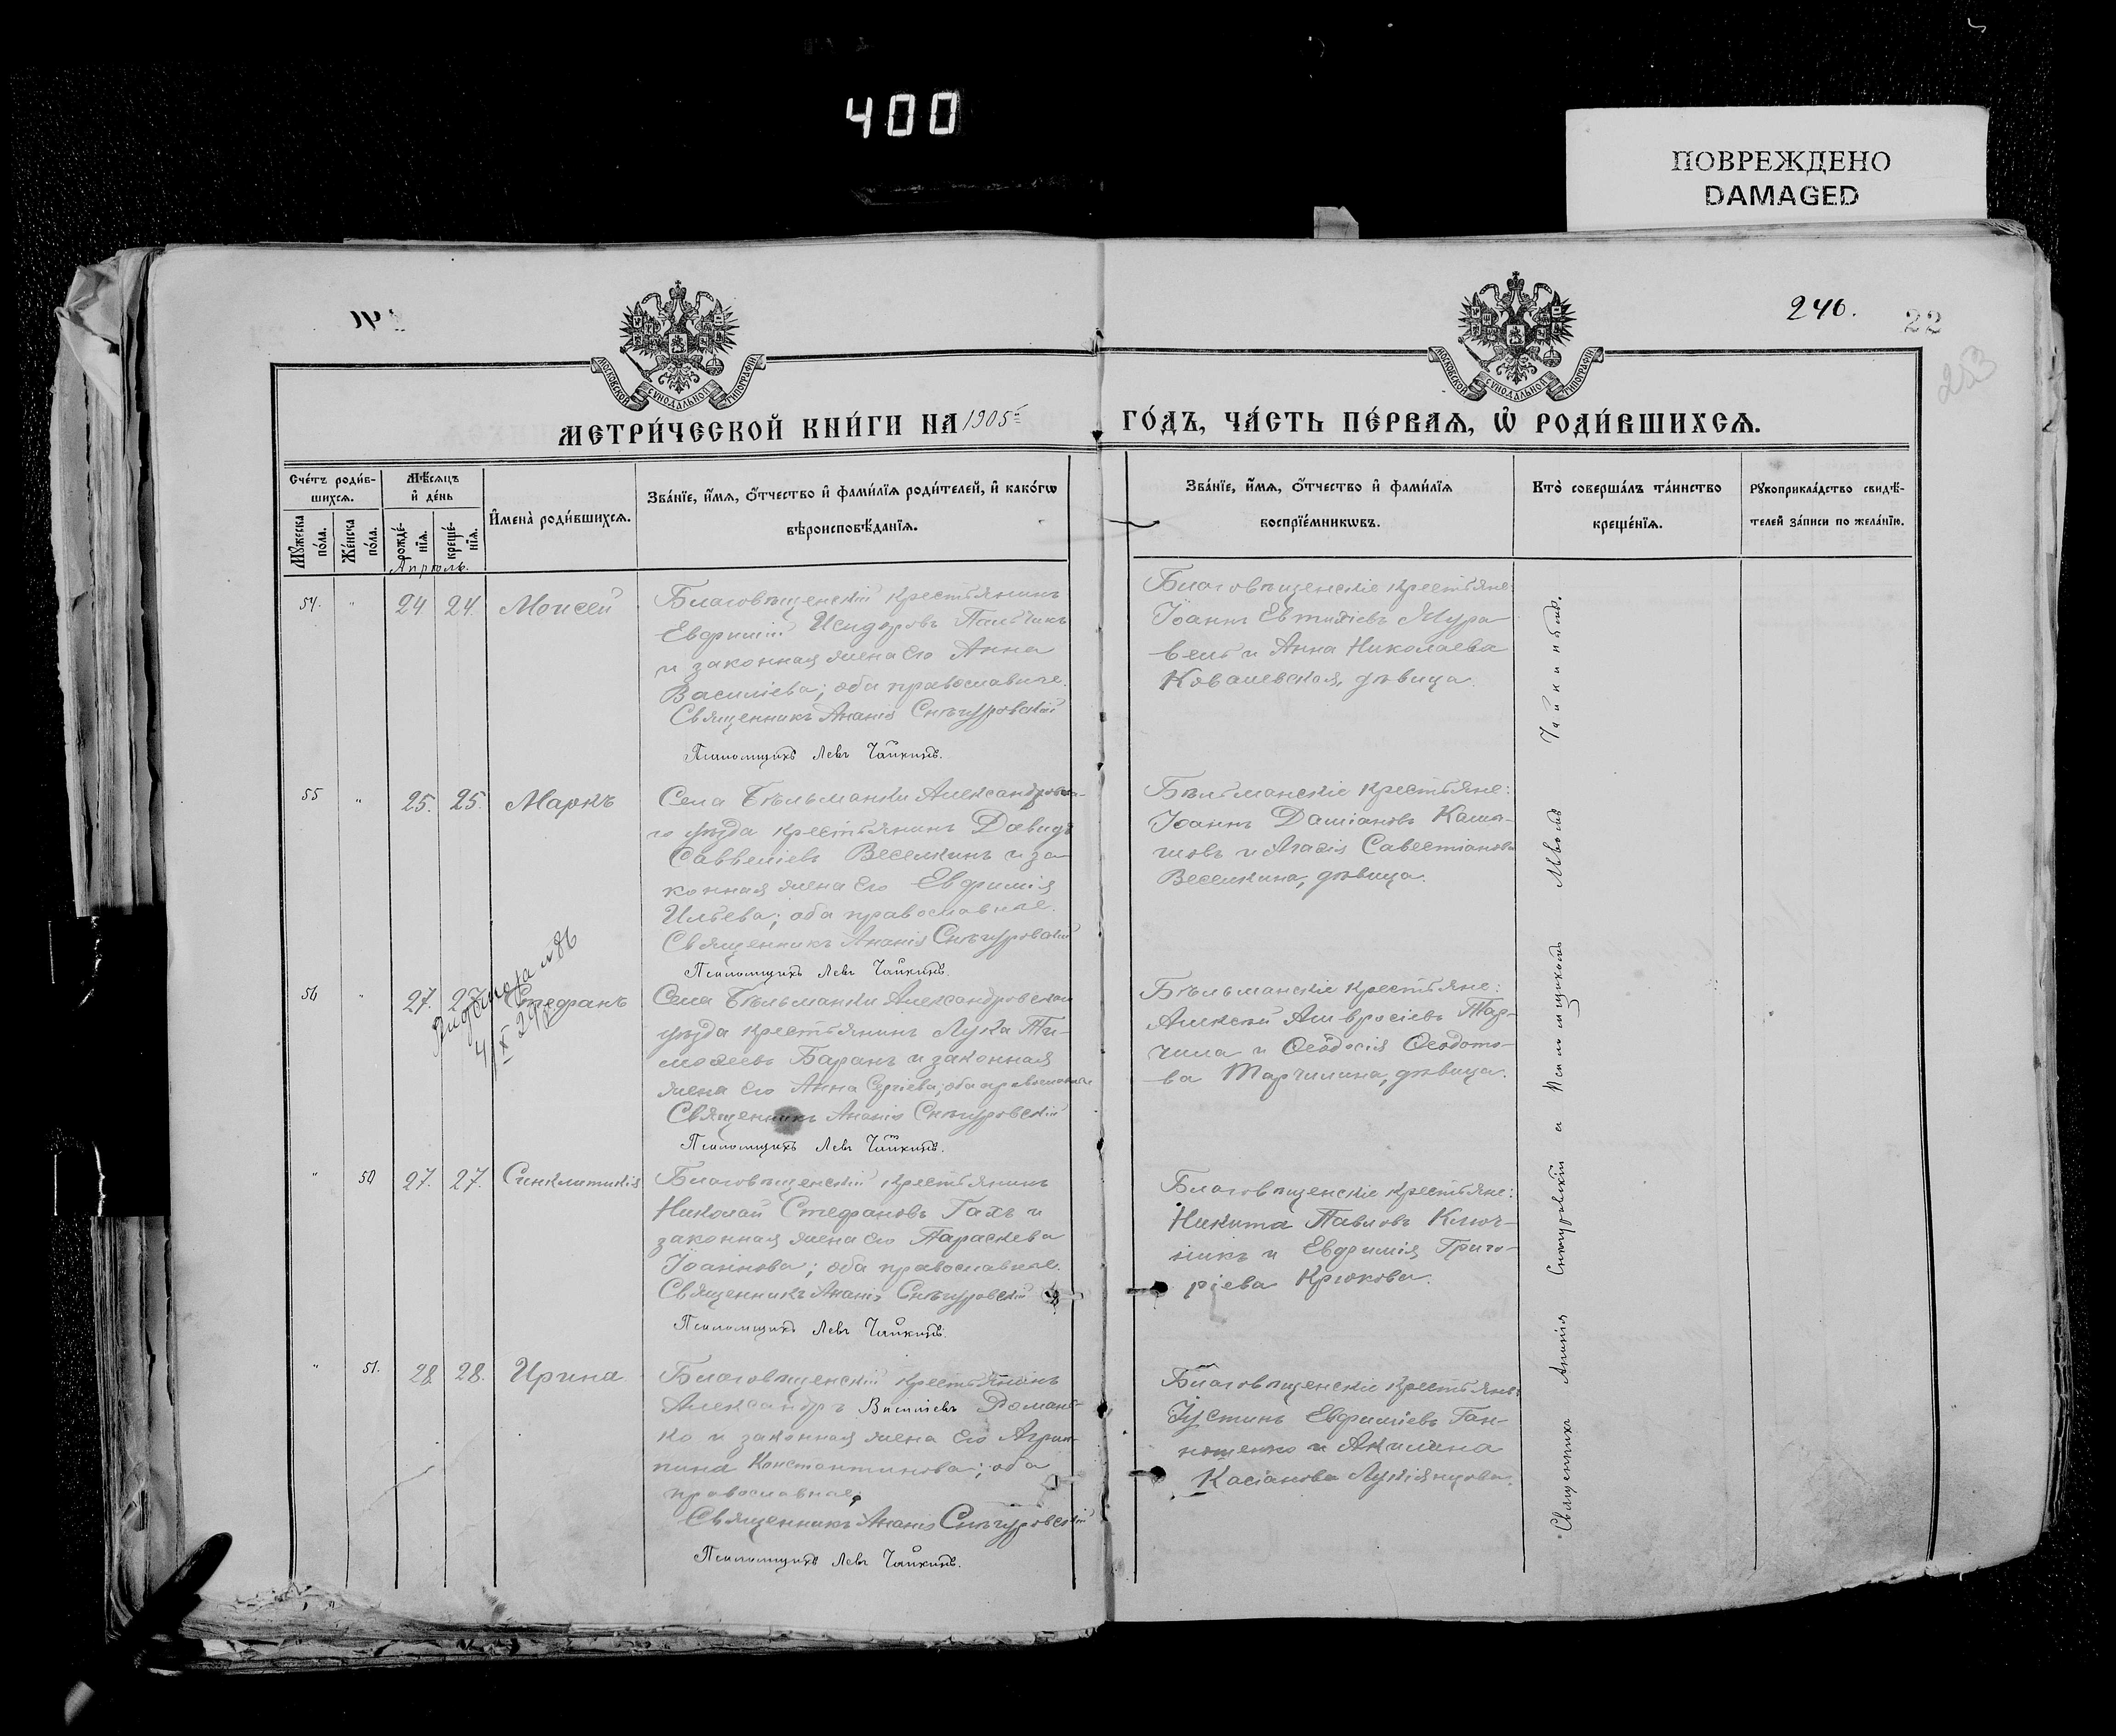 400
ПОВРЕЖДЕНО
DAMAGED
240.
22
253
МОСКОВСКОЙ СѴНОДАЛЬНОЙ ТИПОГРАФІИ
МОСКОВСКОЙ СѴНОДАЛЬНОЙ ТИПОГРАФІИ
МЕТРИ́ЧЕСКОЙ КНИ́ГИ НА 1905 й
ГО́ДЪ, ЧА́СТЬ ПЕ́РВАѦ, Ѡ҆ РОДИ́ВШИХСѦ.
Сче́тъ роди́в-
шихсѧ.
Мꙋ́жеска
по́ла.
Же́нска
по́ла.
Мѣ́сѧцъ
и҆ де́нь
рожде́-
нїѧ.
креще́-
нїѧ.
Апрѣль.
И҆мена̀ роди́вшихсѧ.
Зва́нїе, и҆́мѧ, ѻ҆́тчество и҆ фами́лїѧ роди́телей, и҆ како́гѡ
вѣроисповѣ́данїѧ.
Зва́нїе, и҆́мѧ, ѻ҆́тчество и҆ фами́лїѧ
воспрїе́мникѡвъ.
Кто̀ соверша́лъ та́инство
креще́нїѧ.
Рꙋкоприкла́дство свидѣ́-
телей за́писи по жела́нїю.
54. " 24 24. Моисей
Благовѣщенскій крестьянинъ
Евфимій Исидоровъ Пальчикъ
и законная жена его Анна
Василіева; оба православные.
Священникъ Ананія Снѣгуровскій
Псаломщикъ Левъ Чайкинъ.
Благовѣщенскіе крестьяне:
Іоаннъ Евтихіевъ Мура
вель и Анна Николаева
Ковалевская, дѣвица.
55 " 25. 25. Маркъ
Села Бѣльманки Александровска-
го уѣзда крестьянинъ Давидъ
Савветіевъ Веселкинъ и за
конная жена его Евфимія
Ильева; оба православные.
Священникъ Ананія Снѣгуровскій
Псаломщикъ Левъ Чайкинъ.
Бѣльманскіе крестьяне:
Іоаннъ Даміановъ
и Агаѳія Савестіанова
Веселкина, дѣвица.
56 " 27. 27. Стефанъ
4/X 29
Села Бѣльманки Александровскаго
уѣзда крестьянинъ Лука Ти-
моѳеевъ Баранъ и законная
жена его Анна Сергіева; оба православные
Священникъ Ананія Снѣгуровскій
Псаломщикъ Левъ Чайкинъ.
Бѣльманскіе крестьяне:
Алексѣй Амвросіевъ
и Ѳеодосія Ѳеодото-
ва дѣвица.
" 50 27. 27. Синклитикія
Благовѣщенскій крестьянинъ
Николай Стефановъ Гахъ и
законная жена его Параскева
Іоаннова; оба православные.
Священникъ Ананія Снѣгуровскій
Псаломщикъ Левъ Чайкинъ.
Благовѣщенскіе крестьяне:
Никита Павловъ Ключ-
никъ и Евфимія Григо-
ріева Крюкова.
" 51. 28. 28. Ирина
Благовѣщенскій крестьянинъ
Александръ Василіевъ Романе-
ко и законная жена его Агрип-
пина Константинова; оба
православные.
Священникъ Ананія Снѣгуровскій
Псаломщикъ Левъ Чайкинъ.
Благовѣщенскіе крестьяне:
Іустинъ Евфиміевъ Ган-
нощенко и Акилина
Касіанова Лукіянцова.
Священникъ Ананія Снѣгуровскій съ Псаломщикомъ Львомъ Чайкинымъ.